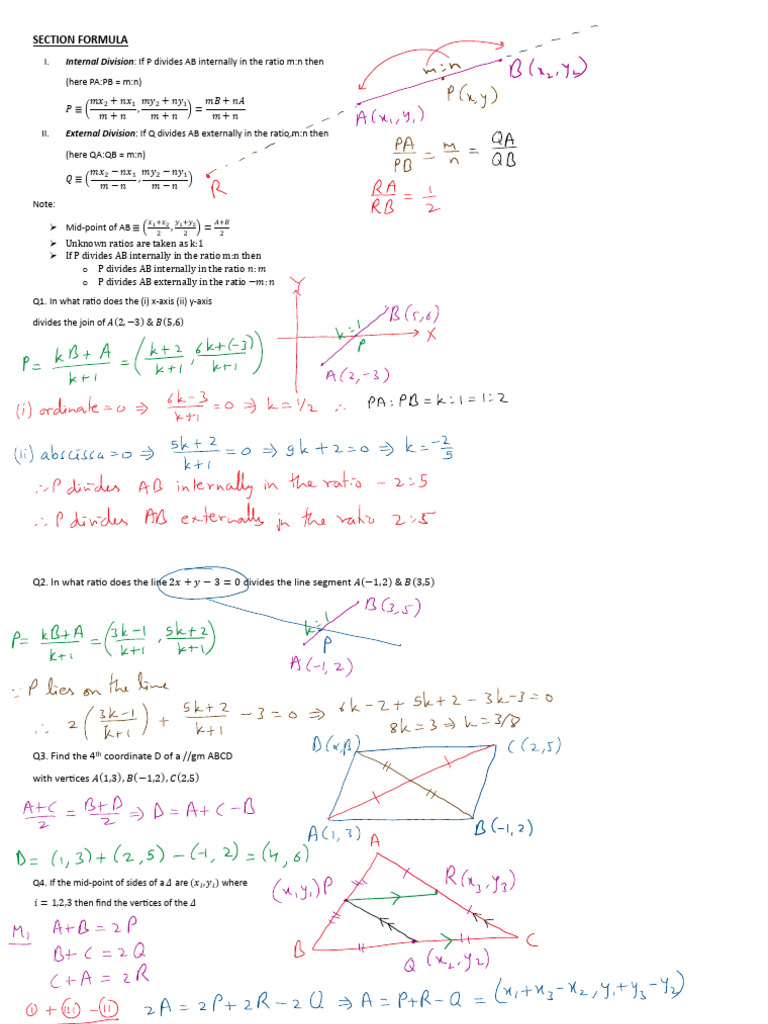 SECTION FORMULA
I. Internal Division: If P divides AB internally in the ratio m:n then
(here PA:PB = m:n)
P ≡ ((mx₂ + nx₁)/(m + n), (my₂ + ny₁)/(m + n)) = (mB + nA)/(m + n)
II. External Division: If Q divides AB externally in the ratio,m:n then
(here QA:QB = m:n)
Q ≡ ((mx₂ − nx₁)/(m − n), (my₂ − ny₁)/(m − n))
m:n
B(x₂, y₂)
P(x, y)
A(x₁, y₁)
PA/PB = m/n = QA/QB
R
RA/RB = 1/2
Note:
➢ Mid-point of AB ≡ ((x₁+x₂)/2, (y₁+y₂)/2) = (A+B)/2
➢ Unknown ratios are taken as k:1
➢ If P divides AB internally in the ratio m:n then
o P divides AB internally in the ratio n: m
o P divides AB externally in the ratio −m: n
Q1. In what ratio does the (i) x-axis (ii) y-axis
divides the join of A(2, −3) & B(5,6)
Y
B(5, 6)
k:1
X
P
A(2, -3)
P = (kB + A)/(k+1) = ((k+2)/(k+1), (6k+(-3))/(k+1))
(i) ordinate = 0 ⇒ (6k-3)/(k+1) = 0 ⇒ k = 1/2 ∴ PA:PB = k:1 = 1:2
(ii) abscissa = 0 ⇒ (5k+2)/(k+1) = 0 ⇒ 9k+2=0 ⇒ k = -2/5
∴ P divides AB internally in the ratio -2:5
∴ P divides AB externally in the ratio 2:5
Q2. In what ratio does the line 2x + y − 3 = 0 divides the line segment A(−1,2) & B(3,5)
B(3, 5)
k:1
P
A(-1, 2)
P = (kB+A)/(k+1) = ((3k-1)/(k+1), (5k+2)/(k+1))
∵ P lies on the line
∴ 2((3k-1)/(k+1)) + (5k+2)/(k+1) - 3 = 0 ⇒ 6k-2+5k+2-3k-3=0
8k = 3 ⇒ k = 3/8
Q3. Find the 4th coordinate D of a //gm ABCD
with vertices A(1,3), B(−1,2), C(2,5)
D(α, β)
C(2, 5)
A(1, 3)
B(-1, 2)
(A+C)/2 = (B+D)/2 ⇒ D = A+C-B
D = (1, 3) + (2, 5) - (-1, 2) = (4, 6)
Q4. If the mid-point of sides of a Δ are (xᵢ, yᵢ) where
i = 1,2,3 then find the vertices of the Δ
A
(x₁ y₁) P
R(x₃, y₃)
B
C
Q (x₂, y₂)
M₁
A+B = 2P
B+C = 2Q
C+A = 2R
(i) + (iii) - (ii) 2A = 2P+2R-2Q ⇒ A = P+R-Q = (x₁+x₃-x₂, y₁+y₃-y₂)